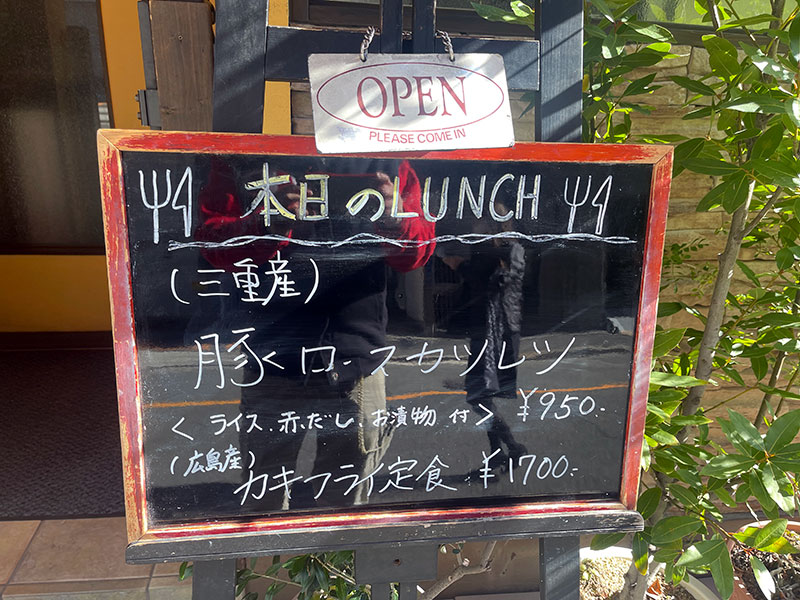 OPEN
PLEASE COME IN
本日のLUNCH
(三重産)
豚ロースカツレツ
<ライス、赤だし、お漬物 付> ¥950-
(広島産)
カキフライ定食 ¥1700-